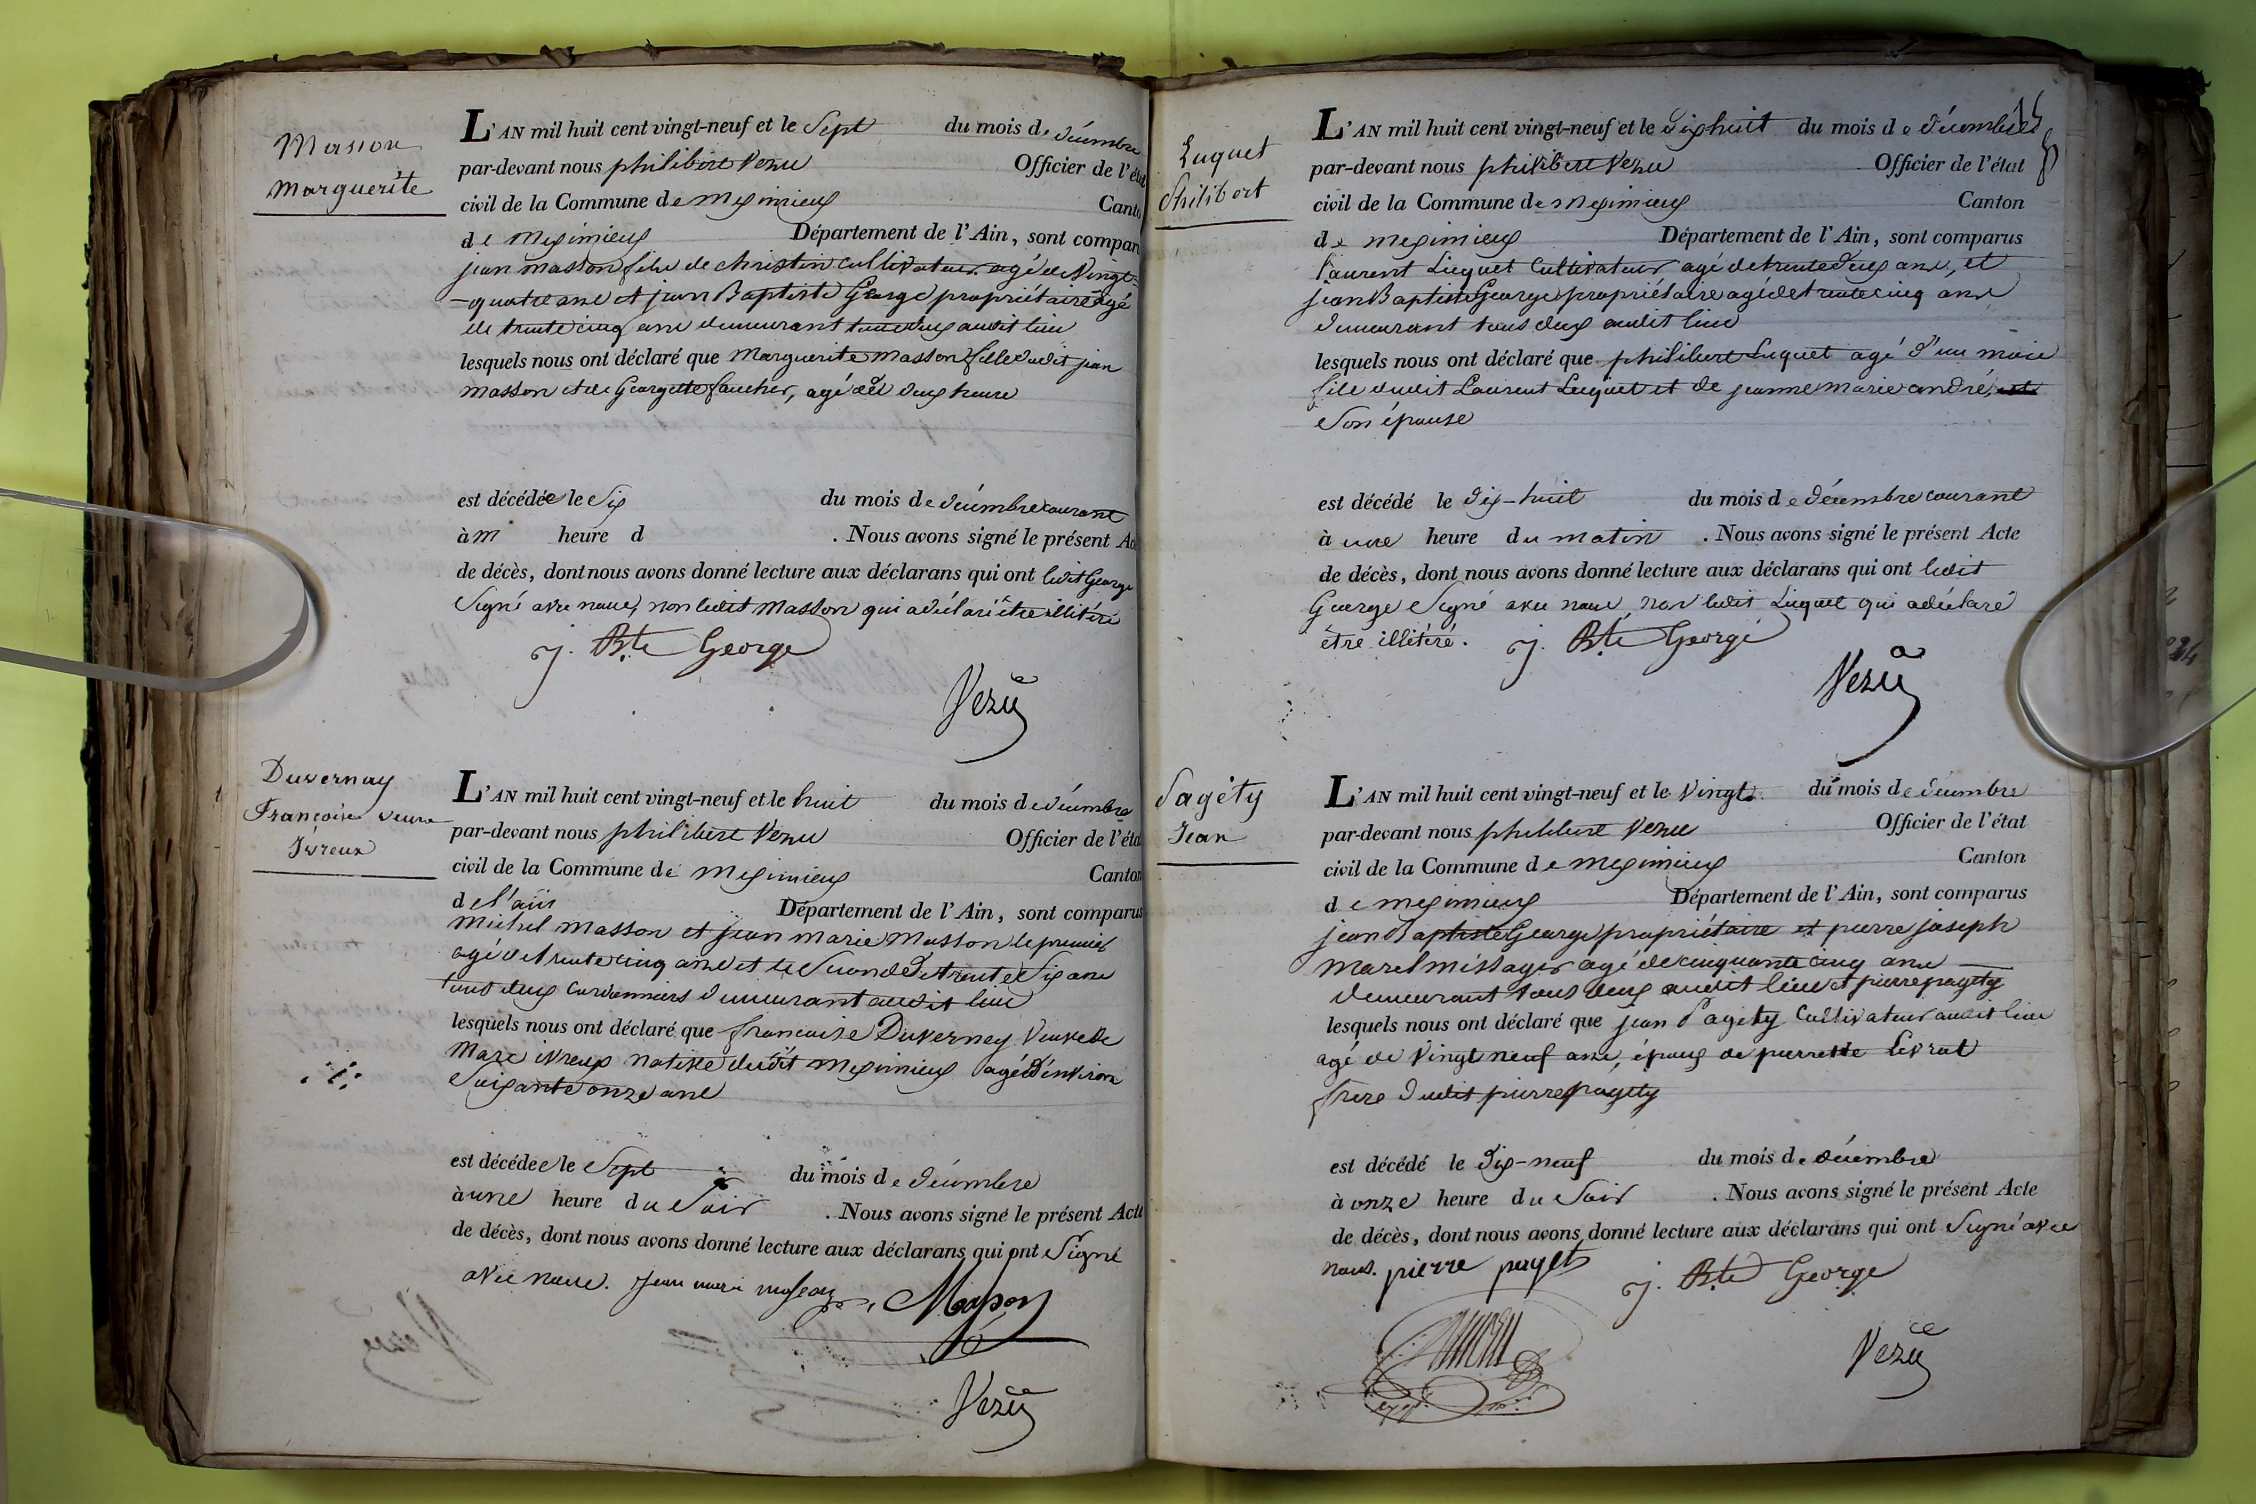 Masson
Marguerite
L'AN mil huit cent vingt-neuf et le Sept du mois de décembre
par-devant nous philibert Vezu Officier de l'état
civil de la Commune de meximieux Canto
de meximieux Département de l'Ain, sont compar
jean masson fils de christin cultivateur agé de Vingt-
quatre ans et jean Baptiste George propriétaire agé
de trente cinq ans demeurant tous deux audit lieu
lesquels nous ont déclaré que Marguerite masson fille dudit jean
masson et de Georgette faucher, agé de deux heures
est décédée le Six du mois de décembre courant
à m heure d . Nous avons signé le présent Ac
de décès, dont nous avons donné lecture aux déclarans qui ont ledit George
Signé avec nous, non ledit masson qui a déclaré être illitéré
j. Bte George
Vezu
Duvernay
Françoise veuve
Ivreux
L'AN mil huit cent vingt-neuf et le huit du mois de décembre
par-devant nous philibert Vezu Officier de l'éta
civil de la Commune de meximieux Canton
de l'ain Département de l'Ain, sont comparus
Michel masson et jean marie Masson le premier
agé de trente cinq ans et le Second de trente Six ans
tous deux Cordonniers demeurant audit lieu
lesquels nous ont déclaré que francoise Duverney Veuve de
Marc ivreux native dudit meximieux agée d'environ
Soixante onze ans
est décédée le Sept du mois de décembre
à une heure du Soir . Nous avons signé le présent Acte
de décès, dont nous avons donné lecture aux déclarans qui ont Signé
avec nous. Jean marie masson, Masson
Vezu
Luquet
Philibert
L'AN mil huit cent vingt-neuf et le dix huit du mois de décembre
par-devant nous philibert Vezu Officier de l'état
civil de la Commune de meximieux Canton
de meximieux Département de l'Ain, sont comparus
Laurent Luquet Cultivateur agé de trente deux ans, et
jean Baptiste George propriétaire agé de trente cinq ans
demeurant tous deux audit lieu
lesquels nous ont déclaré que philibert Luquet agé d'un mois
fils dudit Laurent Luquet et de jeanne marie andré,
Son épouse
est décédé le dix-huit du mois de décembre courant
à une heure du matin . Nous avons signé le présent Acte
de décès, dont nous avons donné lecture aux déclarans qui ont ledit
George Signé avec nous, non ledit Luquet qui a déclaré
être illitéré. j. Bte George
Vezu
Pagéty
Jean
L'AN mil huit cent vingt-neuf et le Vingt du mois de décembre
par-devant nous philibert Vezu Officier de l'état
civil de la Commune de meximieux Canton
de meximieux Département de l'Ain, sont comparus
jean Baptiste George propriétaire et pierre joseph
Marel messager agé de cinquante cinq ans
demeurant tous deux audit lieu et pierre pagety
lesquels nous ont déclaré que jean Pagéty Cultivateur audit lieu
agé de Vingt neuf ans, époux de pierrette Levrat
frère dudit pierre pagety
est décédé le dix-neuf du mois de décembre
à onze heure du Soir . Nous avons signé le présent Acte
de décès, dont nous avons donné lecture aux déclarans qui ont Signé avec
nous. pierre paget j. Bte George
Vezu